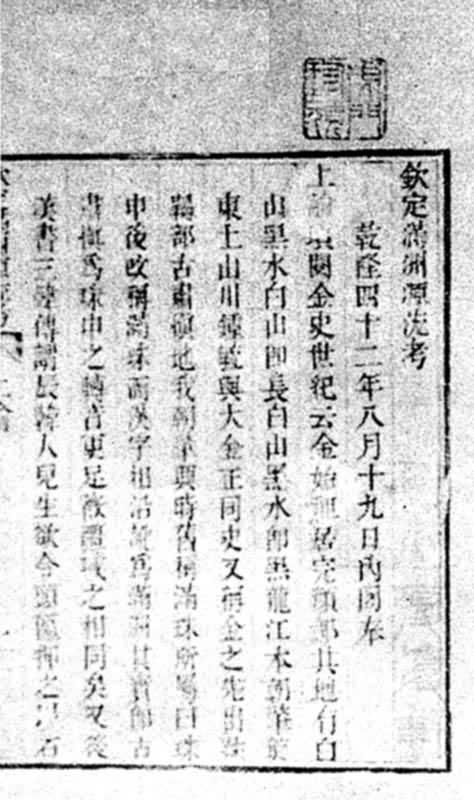 欽定滿洲源流考
乾隆四十二年八月十九日內閣奉
上諭頃閱金史世紀云金始祖居完顏部其地有白
山黑水白山即長白山黑水即黑龍江本朝肇興
東土山川鍾毓與大金正同史又稱金之先出靺
鞨部古肅慎地我朝肇興時舊稱滿珠所屬曰珠
申後改稱滿珠而漢字相沿訛為滿洲其實即古
肅慎為珠申之轉音更足徵疆域之相同矣又後
漢書三韓傳謂辰韓人兒生欲令頭扁押之以石